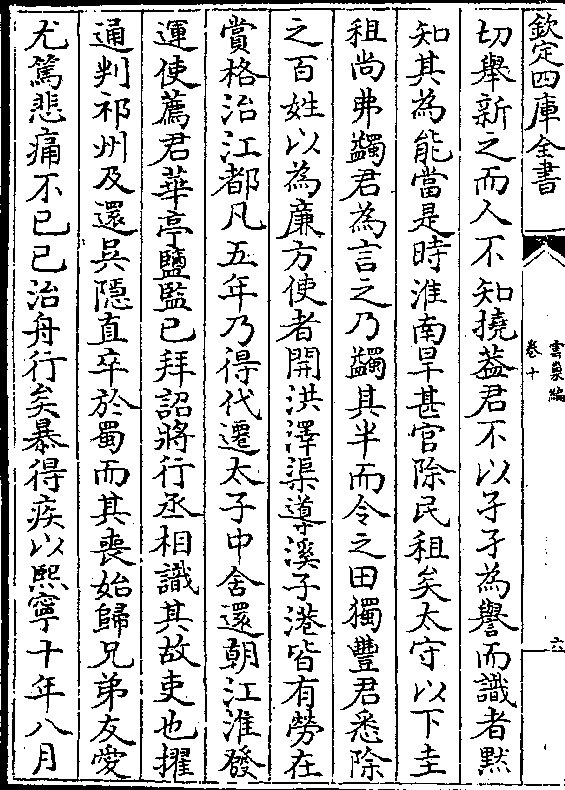 欽定四庫全書
雲巢編
卷十
六
切舉新之而人不知撓葢君不以孑孑為譽而識者黙
知其為能當是時淮南旱甚官除民租矣太守以下圭
租尚弗蠲君為言之乃蠲其半而令之田獨豐君悉除
之百姓以為廉方使者開洪澤渠導溪子港皆有勞在
賞格治江都凡五年乃得代遷太子中舍還朝江淮發
運使薦君華亭鹽監已拜詔將行丞相識其故吏也擢
通判祁州及還吳隱直卒於蜀而其喪始歸兄弟友愛
尤篤悲痛不已已治舟行矣暴得疾以熙寧十年八月